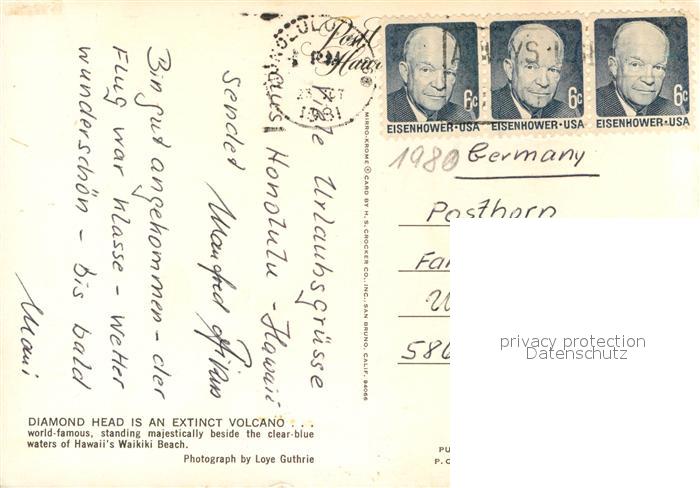 HONOLULU
Post
Hawaii
1981
EISENHOWER·USA 6c
EISENHOWER·USA 6c
EISENHOWER·USA 6c
Viele Urlaubsgrüsse
aus Honolulu - Hawaii
sendet Manfred
Bin gut angekommen - der
Flug war Klasse - Wetter
wunderschön - bis bald
Mani
1980
Germany
Posthorn
Fa
586
privacy protection
Datenschutz
MIRRO-KROME ® CARD BY H. S. CROCKER CO., INC., SAN BRUNO, CALIF. 94066
DIAMOND HEAD IS AN EXTINCT VOLCANO . . .
world-famous, standing majestically beside the clear-blue
waters of Hawaii's Waikiki Beach.
Photograph by Loye Guthrie
PU
P. O